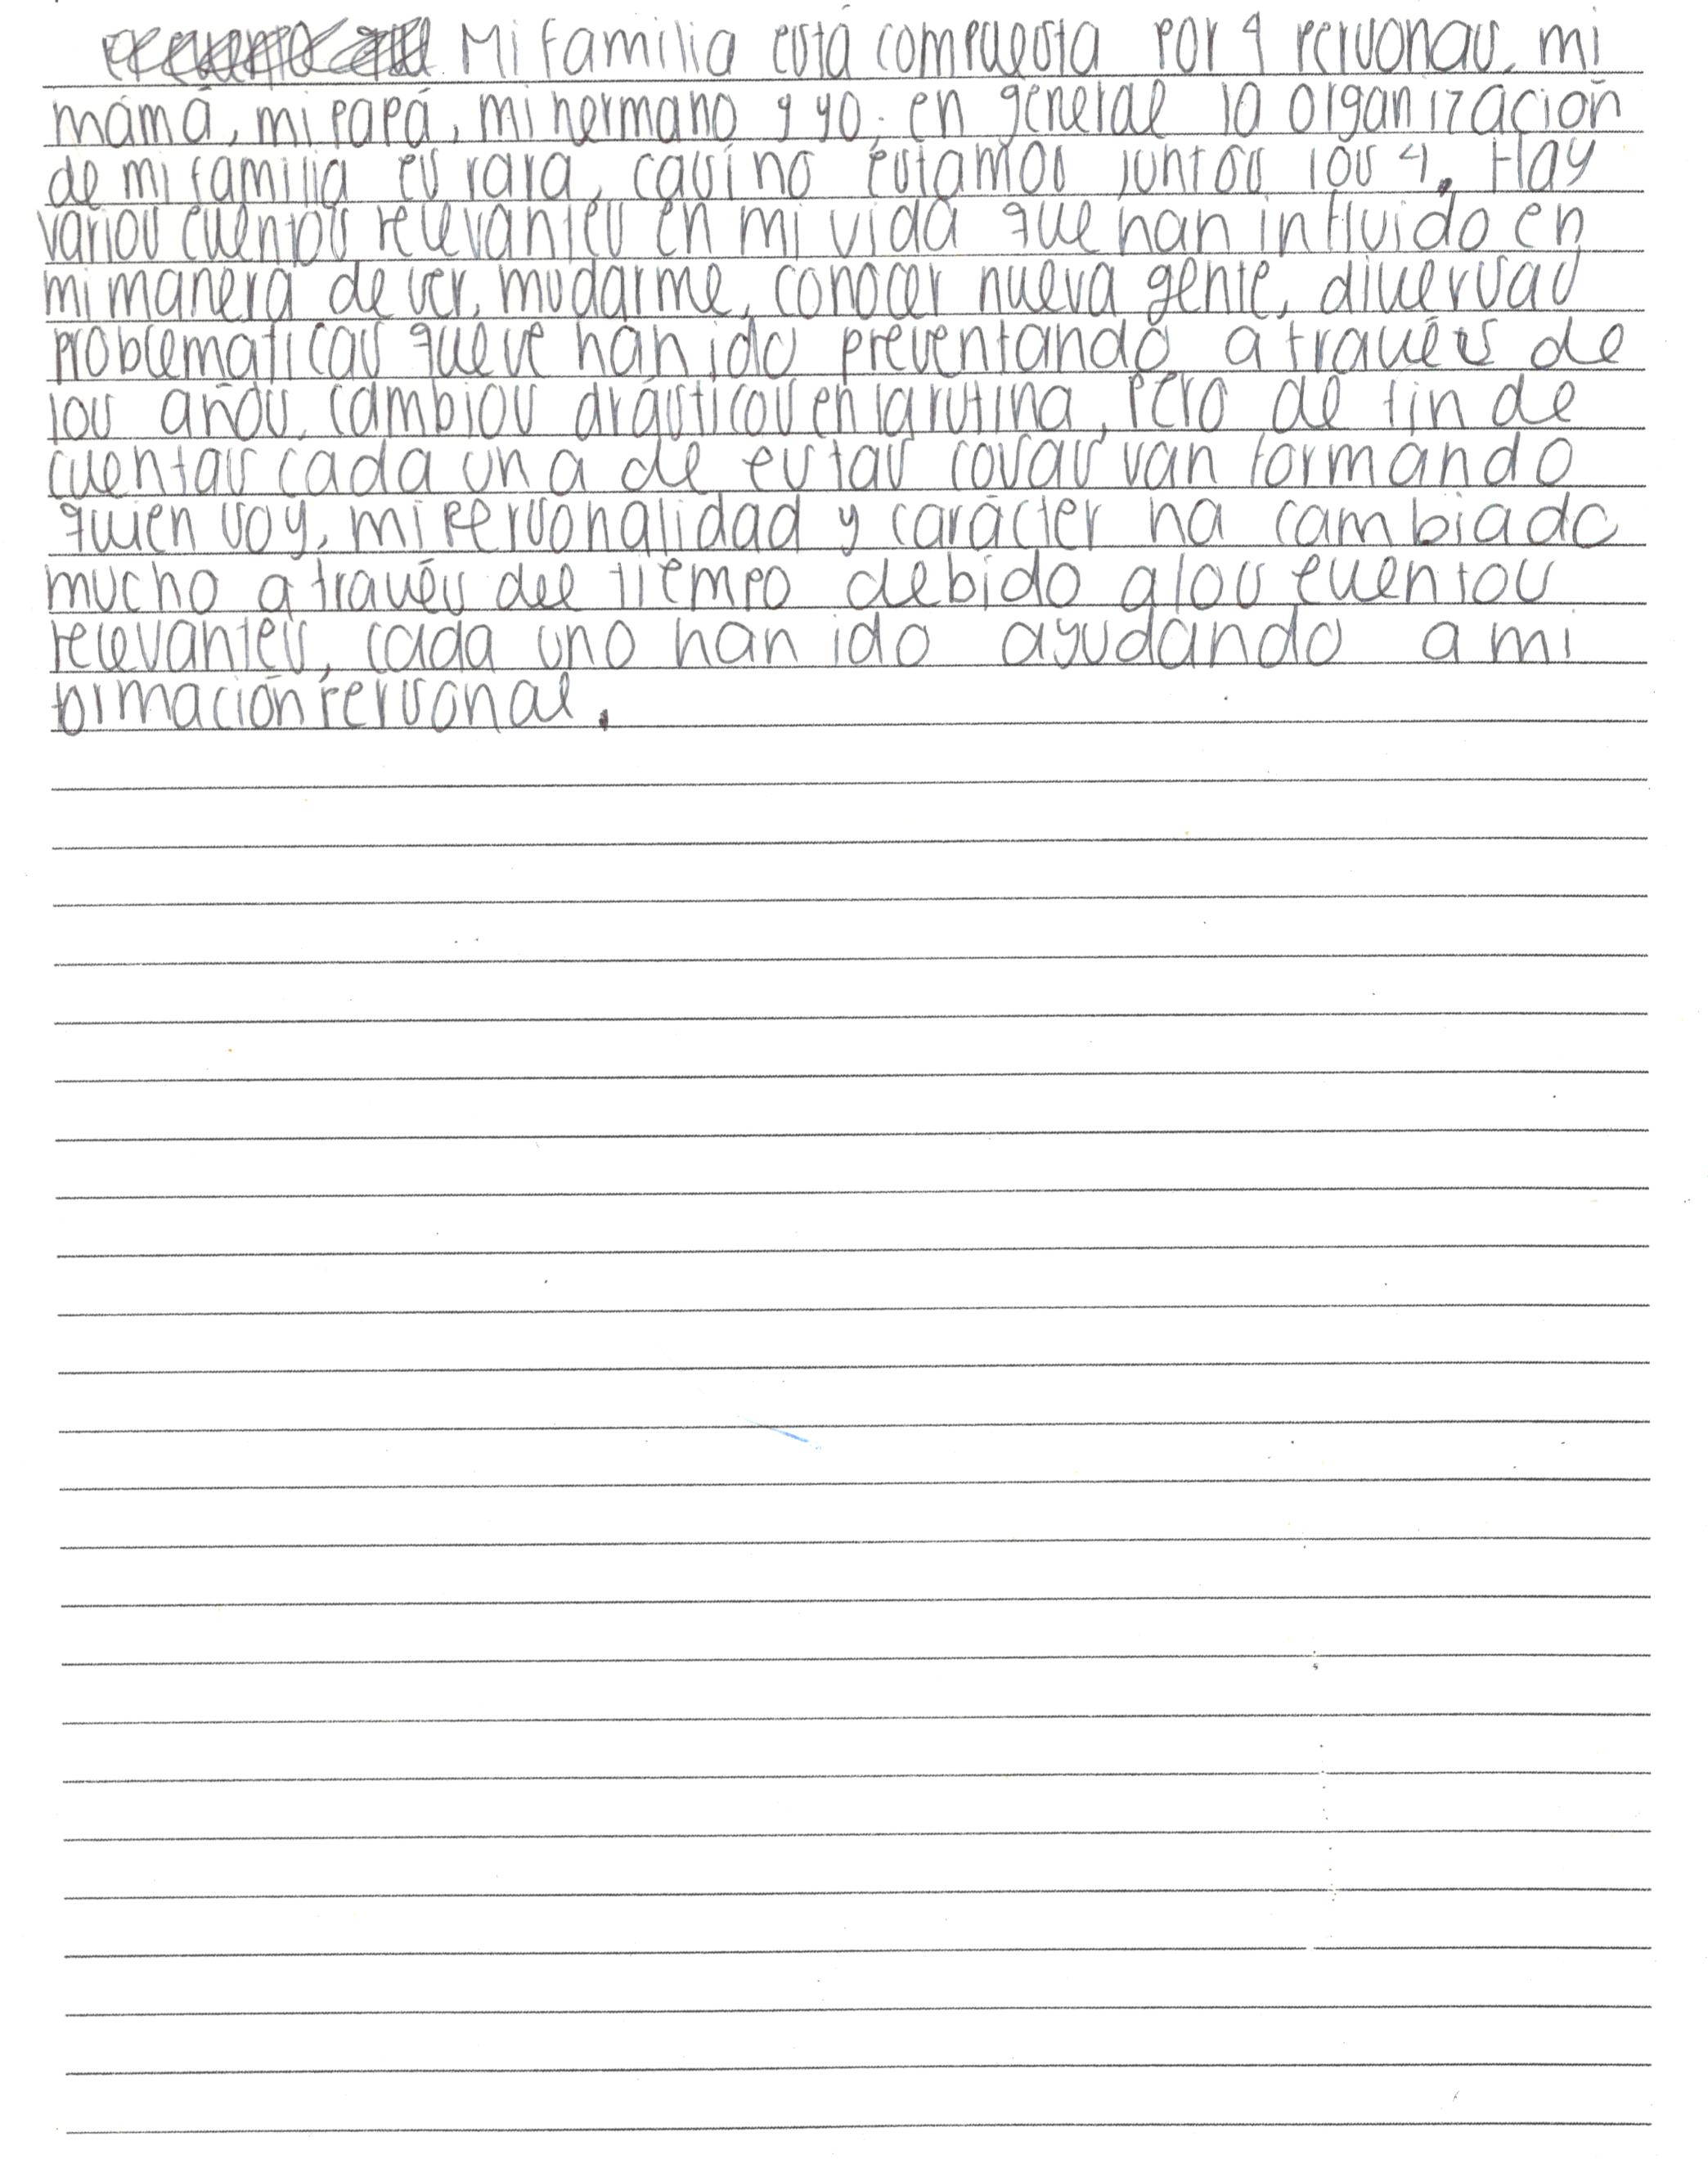 Mi familia está compuesta por 4 personas, mi
mámá, mi papá, mi hermano y yo. en general la organización
de mi familia es rara, casi no estamos juntos los 4. Hay
varios cuentos relevantes en mi vida que han influido en
mi manera de ver, mudarme, conocer nueva gente, diversas
problematicas que se han ido presentando a través de
los años, cambios drásticos en la rutina, pero de fin de
cuentas cada una de estas cosas van formando
quien soy, mi personalidad y carácter ha cambiado
mucho a través del tiempo debido a los eventos
relevantes, cada uno han ido ayudando a mi
formación personal.